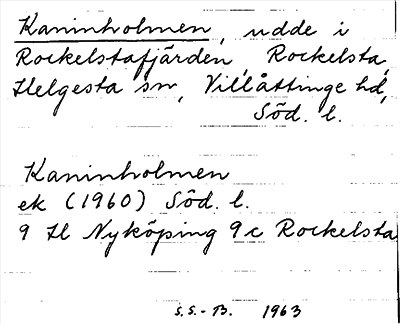 Kaninholmen, udde i
Rockelstafjärden, Rockelsta,
Helgesta sn, Villåttinge hd,
Söd. l.
Kaninholmen
ek (1960) Söd. l.
9 H Nyköping 9c Rockelsta
S.S.-B. 1963